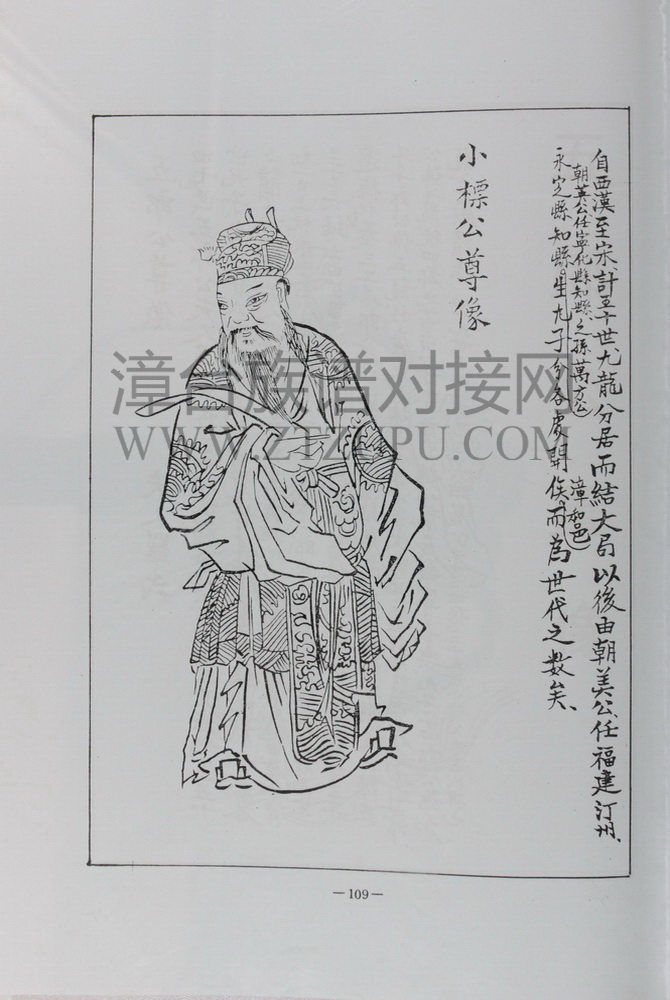 自西漢至宋、計五十世、九龍分居而結大局以後由朝美公任福建汀州、
朝英公任寧化縣知縣、之孫萬方公
漳和邑
永定縣知縣。生九子分各處開侯。而為世代之數矣、
小標公尊像
漳台族谱对接网
WWW.ZTZUPU.COM
—109—